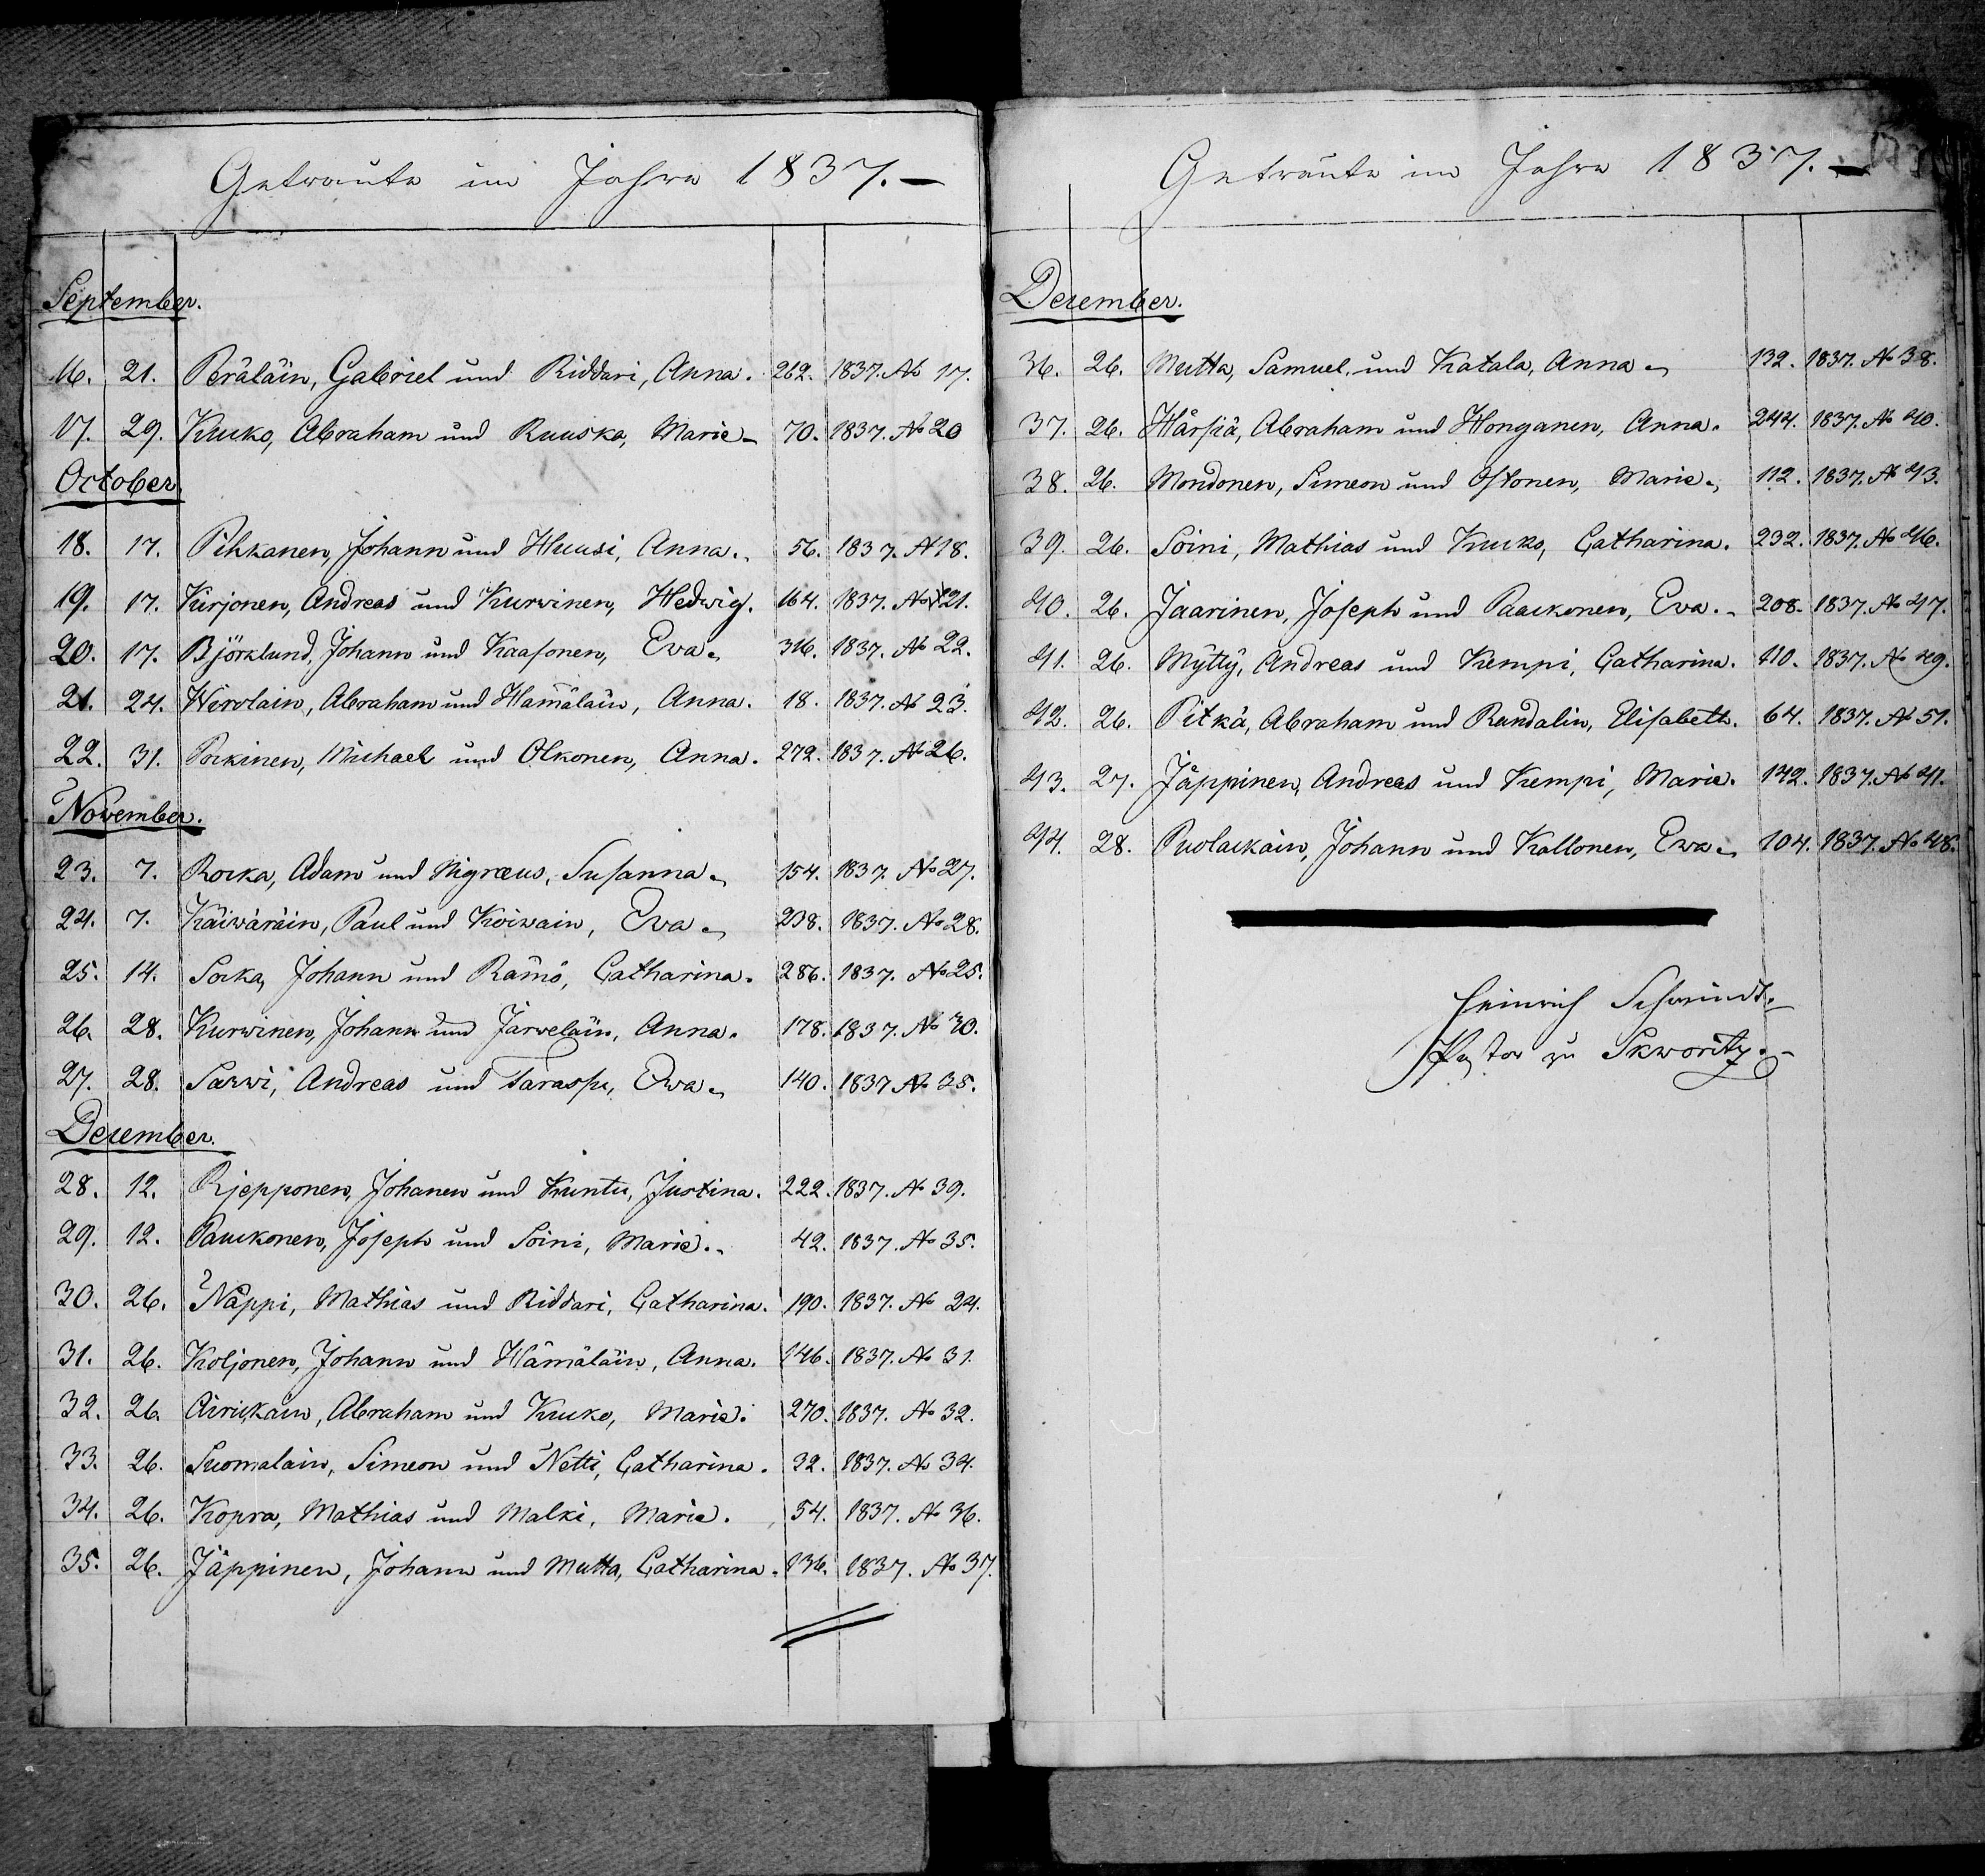 Getraute im Jahre 1837.—
September.
16. 21. Peräläin, Gabriel und Riddari, Anna. 262. 1837. No 17.
17. 29. Kuuko, Abraham und Ruuska, Marie. 70. 1837. No 20
October.
18. 17. Pikkanen, Johann und Huusi, Anna. 56. 1837. No 18.
19. 17. Kirjonen, Andreas und Kurwinen, Hedwig. 164. 1837. No 21.
20. 17. Björklund, Johann und Kaasonen, Eva. 316. 1837. No 22.
21. 24. Wirolain, Abraham und Hämäläin, Anna. 18. 1837. No 23.
22. 31. Pockinen, Michael und Olkonen, Anna. 272. 1837. No 26.
November.
23. 7. Rocka, Adam und Nigræus, Susanna. 154. 1837. No 27.
24. 7. Käiwäräin, Paul und Koiwain, Eva. 238. 1837. No 28.
25. 14. Socka, Johann und Rämö, Catharina. 286. 1837. No 25.
26. 28. Kurwinen, Johann und Järweläin, Anna. 178. 1837. No 30.
27. 28. Sarwi, Andreas und Taraspu, Ewa. 140. 1837 No 35.
December.
28. 12. Rjepponen, Johanen und Kuntu, Justina. 222. 1837. No 39.
29. 12. Pauckonen, Joseph und Soini, Marie. 42. 1837. No 35.
30. 26. Näppi, Mathias und Riddari, Catharina. 190. 1837. No 24.
31. 26. Koljonen, Johann und Hämäläin, Anna. 146. 1837. No 31.
32. 26. Airickain, Abraham und Kuuko, Marie. 270. 1837. No 32.
33. 26. Suomalain, Simeon und Netti, Catharina. 32. 1837. No 34.
34. 26. Kopra, Mathias und Malki, Marie. 54. 1837. No 36.
35. 26. Jäppinen, Johann und Mutta, Catharina. 136. 1837. No 37.
Getraute im Jahre 1837.—
December.
36. 26. Mutta, Samuel, und Katala, Anna. 132. 1837. No 38.
37. 26. Härsiä, Abraham und Honganen, Anna. 244. 1837. No 40.
38. 26. Mondonen, Simeon und Ostonen, Marie. 112. 1837. No 43.
39. 26. Soini, Mathias und Kuuko, Catharina. 232. 1837. No 46.
40. 26. Jaarinen, Joseph und Paackonen, Eva. 208. 1837. No 47.
41. 26. Mytty, Andreas und Kempi, Catharina. 110. 1837. No 49.
42. 26. Pitkä, Abraham und Randalin, Elisabeth. 64. 1837. No 51.
43. 27. Jäppinen, Andreas und Kempi, Marie. 142. 1837. No 41.
44. 28. Puolackain, Johann und Kallonen, Ewa. 104. 1837. No 48.
Heinrich Schwindt
Pastor zu Skworitz.